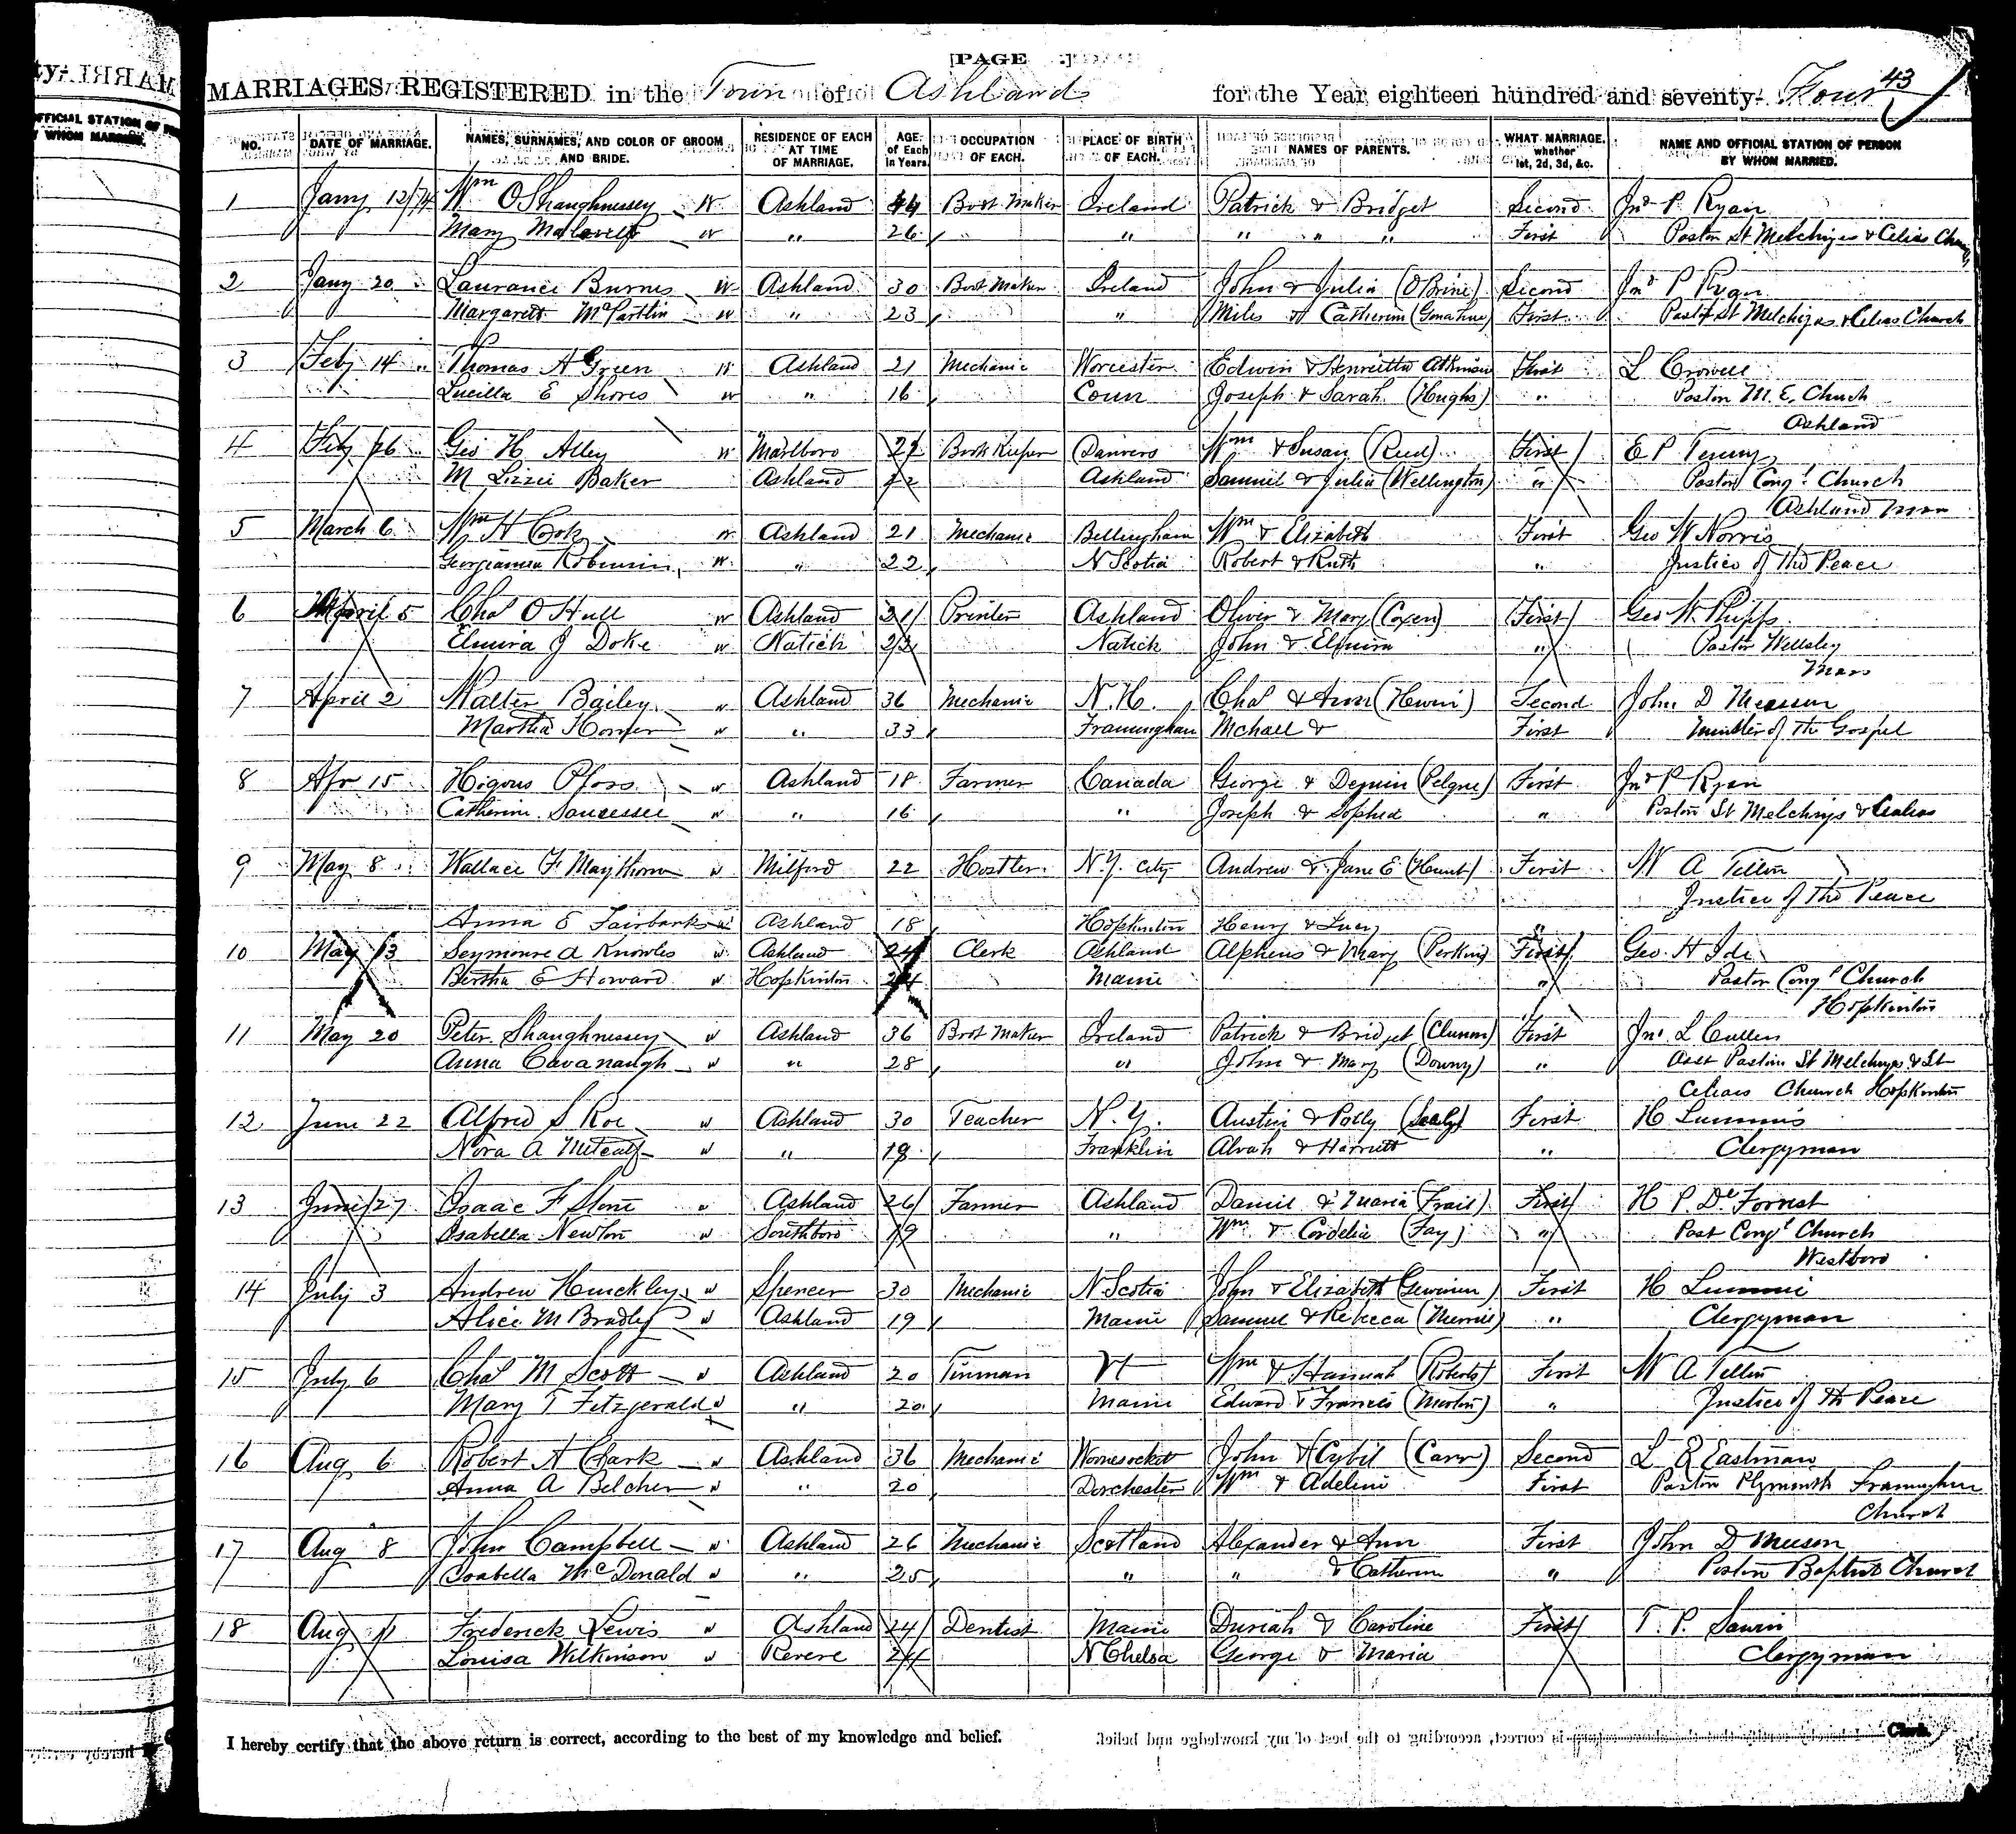 [PAGE ]
43
MARRIAGES REGISTERED in the Town of Ashland for the Year eighteen hundred and seventy- Four
NO. DATE OF MARRIAGE. NAMES, SURNAMES, AND COLOR OF GROOM AND BRIDE. RESIDENCE OF EACH AT TIME OF MARRIAGE. AGE of Each in Years. OCCUPATION OF EACH. PLACE OF BIRTH OF EACH. NAMES OF PARENTS. WHAT MARRIAGE, whether 1st, 2d, 3d, &c. NAME AND OFFICIAL STATION OF PERSON BY WHOM MARRIED.
1 Jany 12/74 Wm OShaughnessey W Ashland 44 Boot Maker Ireland Patrick & Bridget Second Jno P. Ryan
Mary W " 26 " " " " First Pastor St Melchizes & Celias Church
2 Jany 20 Laurance Burnes W Ashland 30 Boot Maker Ireland John & Julia (OBrine) Second Jno P Ryan
Margarett McPartlin W " 23 " Miles & Catherin First Pastor St Melchizas & Celias Church
3 Feby 14 Thomas A Green W Ashland 21 Mechanic Worcester Edwin & Henrietta First L Crowell
Lucilla E Shores W " 16 Conn Joseph & Sarah (Hughs) " Pastor M. E. Church
Ashland
4 Feby 26 Geo H Alley W Marlboro 22 Book Keeper Danvers Wm & Susan (Reed) First E P Tenny
M Lizzie Baker Ashland 22 Ashland Samuel & Julia (Wellington) " Pastor Congl Church
Ashland Mass
5 March 6 Wm H Cook W Ashland 21 Mechanic Bellingham Wm & Elizabeth First Geo W Norris
Georgianna Robinson W " 22 N Scotia Robert & Ruth " Justice of The Peace
6 April 5 Chas O Hull W Ashland 21 Printer Ashland Oliver & Mary (Coxen) First Geo W. Phipps
Elmira J Doke W Natick 22 Natick John & Elmira " Pastor Wellsley
Mass
7 April 2 Walter Bailey W Ashland 36 Mechanic N.H. Chas & Ann Second John D
Martha W " 33 Framingham Michael & First Minister of the Gospel
8 Apr 15 W Ashland 18 Farmer Canada George & First Jno P Ryan
Catherine W " 16 " Joseph & Sophia " Pastor St Melchizs &
9 May 8 Wallace F W Milford 22 Hostler N.Y. City Andrew & Jane E (Hunt) First W A Tilton
Justice of the Peace
Anna E Fairbanks W Ashland 18 Hopkinton Henry & Lucy "
10 May 13 Seymoure A Knowles W Ashland 24 Clerk Ashland Alpheus & Mary (Perkins) First Geo. H Ide
Bertha E Howard W Hopkinton 24 Maine " Pastor Congl Church
Hopkinton
11 May 20 Peter Shaughnessey W Ashland 36 Boot Maker Ireland Patrick & Bridget First Jno L Cullen
Anna Cavanaugh W " 28 " John & Mary (Downy) " Asst Pastor St Melchizs & St
Celias Church Hopkinton
12 June 22 Alfred S Roe W Ashland 30 Teacher N.Y. Austin & Polly First H Lummis
Nora A Metcalf W " 19 Franklin Alvah & Harriett " Clergyman
13 June 27 Isaac F Stone W Ashland 26 Farmer Ashland Daniel & Maria (Frail) First H P. De Forrest
Isabella Newton W Southboro 19 " Wm & Cordelia (Fay) " Past Congl Church
Westboro
14 July 3 Andrew Hinckley W Spencer 30 Mechanic N Scotia John & Elizabeth First H Lummis
Alice M Bradley W Ashland 19 Maine Samuel & Rebecca (Merrill) " Clergyman
15 July 6 Chas M Scott W Ashland 20 Tinman Vt Wm & Hannah (Roberts) First W A Tilton
Mary T Fitzgerald W " 20 Maine Edward & Frances " Justice of the Peace
16 Aug 6 Robert A Clark W Ashland 36 Mechanic Woonsocket John & Cybil (Carr) Second L R Eastman
Anna A Belcher W " 20 Dorchester Wm & Adeline First Pastor Plymouth Framingham
Church
17 Aug 8 John Campbell W Ashland 26 Mechanic Scotland Alexander & Ann First John D
Isabella McDonald W " 25 " " & Catherin " Pastor Baptist Church
18 Aug 11 Frederick Lewis W Ashland 24 Dentist Maine & Caroline First T. P. Sawin
Louisa Wilkinson W Revere 24 N Chelsa George & Maria Clergyman
I hereby certify that the above return is correct, according to the best of my knowledge and belief. Clerk.
OFFICIAL STATION OF
BY WHOM MARRIED.